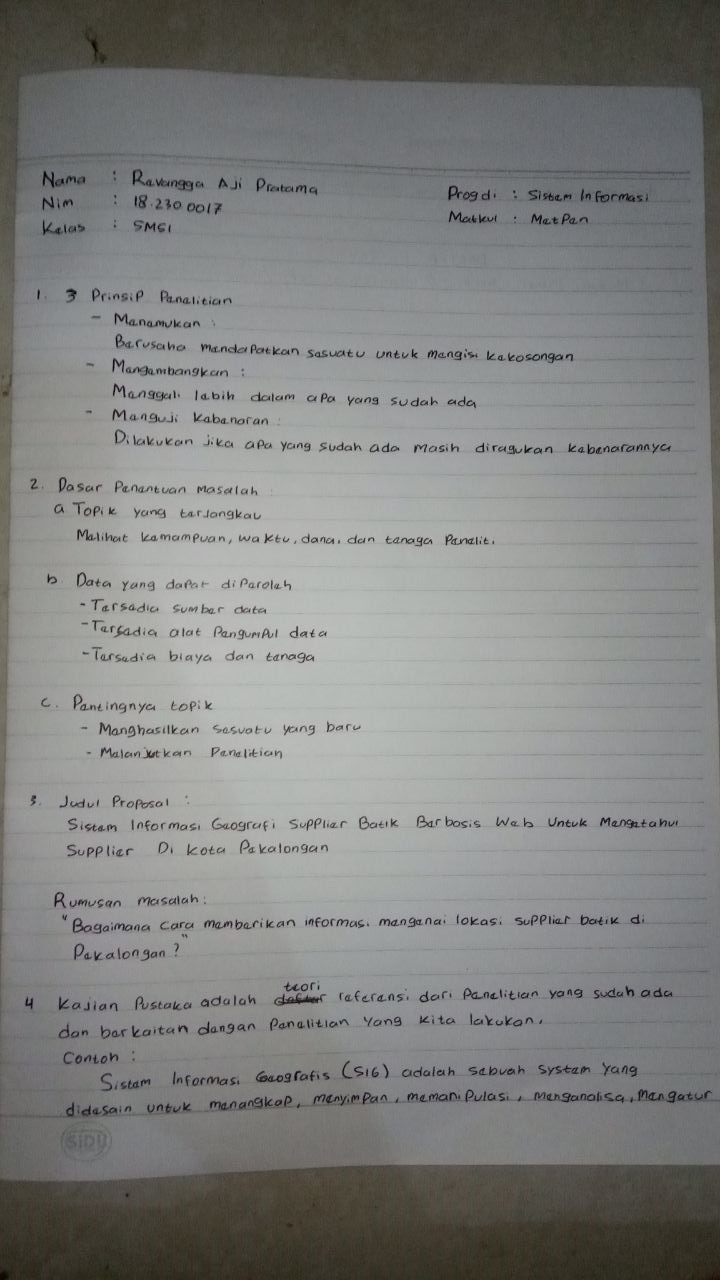 Nama : Revangga Aji Pratama
Nim : 18.230.0017
Kelas : 5MSI
Progdi : Sistem Informasi
Matkul : MetPen
1. 3 Prinsip Penelitian
- Menemukan :
Berusaha mendapatkan sesuatu untuk mengisi kekosongan
- Mengembangkan :
Menggali lebih dalam apa yang sudah ada
- Menguji kebenaran :
Dilakukan jika apa yang sudah ada masih diragukan kebenarannya
2. Dasar Penentuan Masalah :
a Topik yang terjangkau
Melihat kemampuan, waktu, dana, dan tenaga Peneliti
b Data yang dapat diperoleh
- Tersedia sumber data
- Tersedia alat Pengumpul data
- Tersedia biaya dan tenaga
c. Pentingnya topik
- Menghasilkan sesuatu yang baru
- Melanjutkan Penelitian
3. Judul Proposal :
Sistem Informasi Geografi Supplier Batik Berbasis Web Untuk Mengetahui
Supplier Di Kota Pekalongan
Rumusan masalah :
"Bagaimana cara memberikan informasi mengenai lokasi supplier batik di
Pekalongan ?"
4 Kajian Pustaka adalah teori referensi dari Penelitian yang sudah ada
dan berkaitan dengan Penelitian Yang kita lakukan.
Contoh :
Sistem Informasi Geografis (SIG) adalah sebuah system yang
didesain untuk menangkap, menyimpan, memanipulasi, menganalisa, mengatur
SiDU